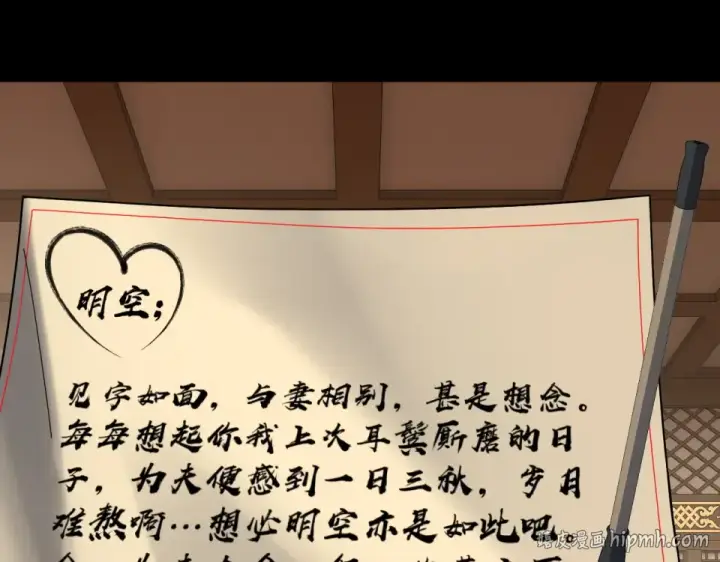 明空;
见字如面，与妻相别，甚是想念。
每每想起你我上次耳鬓厮磨的日
子，为夫便感到一日三秋，岁月
难熬啊…想必明空亦是如此吧。
漫画 hipmh.com